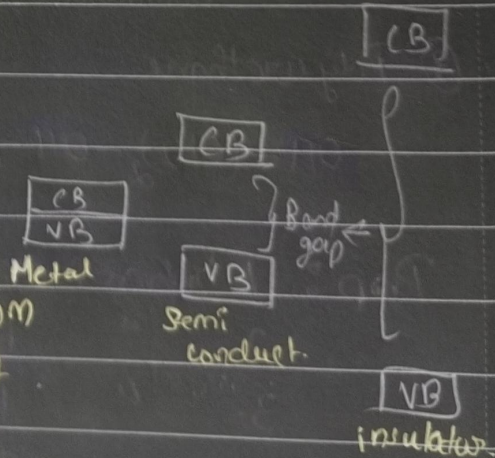 CB
CB
CB
VB
Band
gap
Metal
VB
Semi
conduct.
VB
insulator